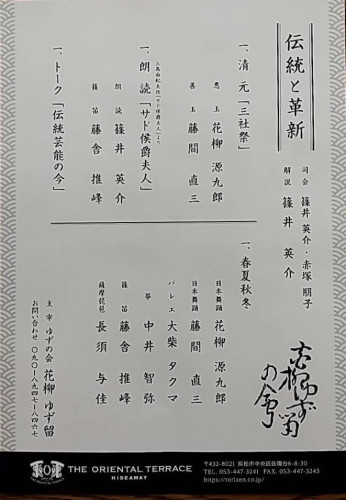 伝統と革新
司会 篠井英介・赤塚朋子
解説 篠井英介
一、清元「三社祭」
悪玉 花柳源九郎
善玉 藤間直三
三島由紀夫作「サド侯爵夫人」より
一、朗読「サド侯爵夫人」
朗読 篠井英介
篠笛 藤舎推峰
一、トーク「伝統芸能の今」
一、春夏秋冬
日本舞踊 花柳源九郎
日本舞踊 藤間直三
バレエ 大柴タクマ
箏 中井智弥
篠笛 藤舎推峰
薩摩琵琶 長須与佳
主宰 ゆずの会 花柳ゆず留
お問い合わせ 〇九〇-八九四七-八四六七
花柳ゆず留の会
THE ORIENTAL TERRACE
HIDEAWAY
〒432-8021 浜松市中央区佐鳴台6-8-30
TEL. 053-447-3241 FAX. 053-447-3243
https://toriaen.co.jp/